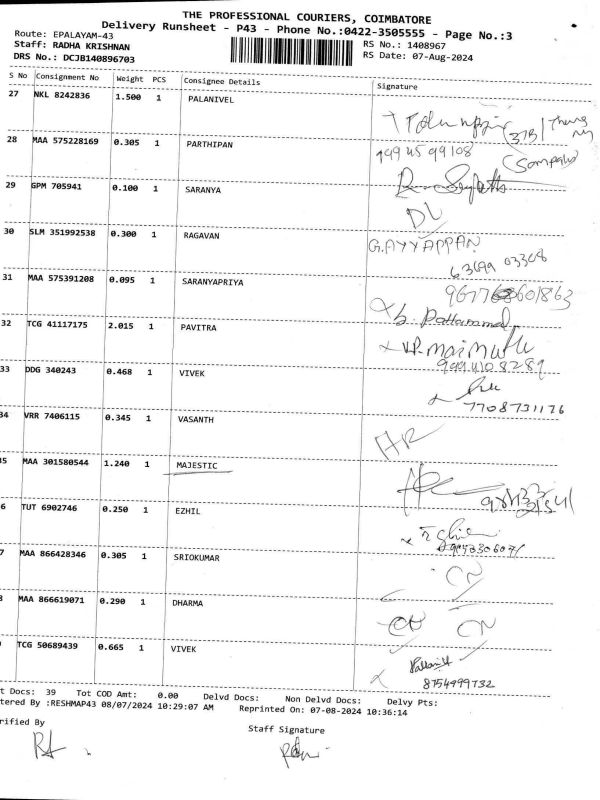 THE PROFESSIONAL COURIERS, COIMBATORE
Delivery Runsheet - P43 - Phone No.:0422-3505555 - Page No.:3
Route: EPALAYAM-43
RS No.: 1408967
Staff: RADHA KRISHNAN
RS Date: 07-Aug-2024
DRS No.: DCJB140896703
S No Consignment No Weight PCS Consignee Details Signature
27 NKL 8242836 1.500 1 PALANIVEL
28 MAA 575228169 0.305 1 PARTHIPAN
29 GPM 705941 0.100 1 SARANYA
DL
30 SLM 351992538 0.300 1 RAGAVAN G.AYYAPPAN
63699 03308
31 MAA 575391208 0.095 1 SARANYAPRIYA
32 TCG 41117175 2.015 1 PAVITRA
33 DDG 340243 0.468 1 VIVEK
7708731176
34 VRR 7406115 0.345 1 VASANTH
35 MAA 301580544 1.240 1 MAJESTIC
6 TUT 6902746 0.250 1 EZHIL
7 MAA 866428346 0.305 1 SRIOKUMAR
CN
8 MAA 866619071 0.290 1 DHARMA
CN
TCG 50689439 0.665 1 VIVEK
8754999732
t Docs: 39 Tot COD Amt: 0.00 Delvd Docs: Non Delvd Docs: Delvy Pts:
tered By :RESHMAP43 08/07/2024 10:29:07 AM Reprinted On: 07-08-2024 10:36:14
rified By
Staff Signature